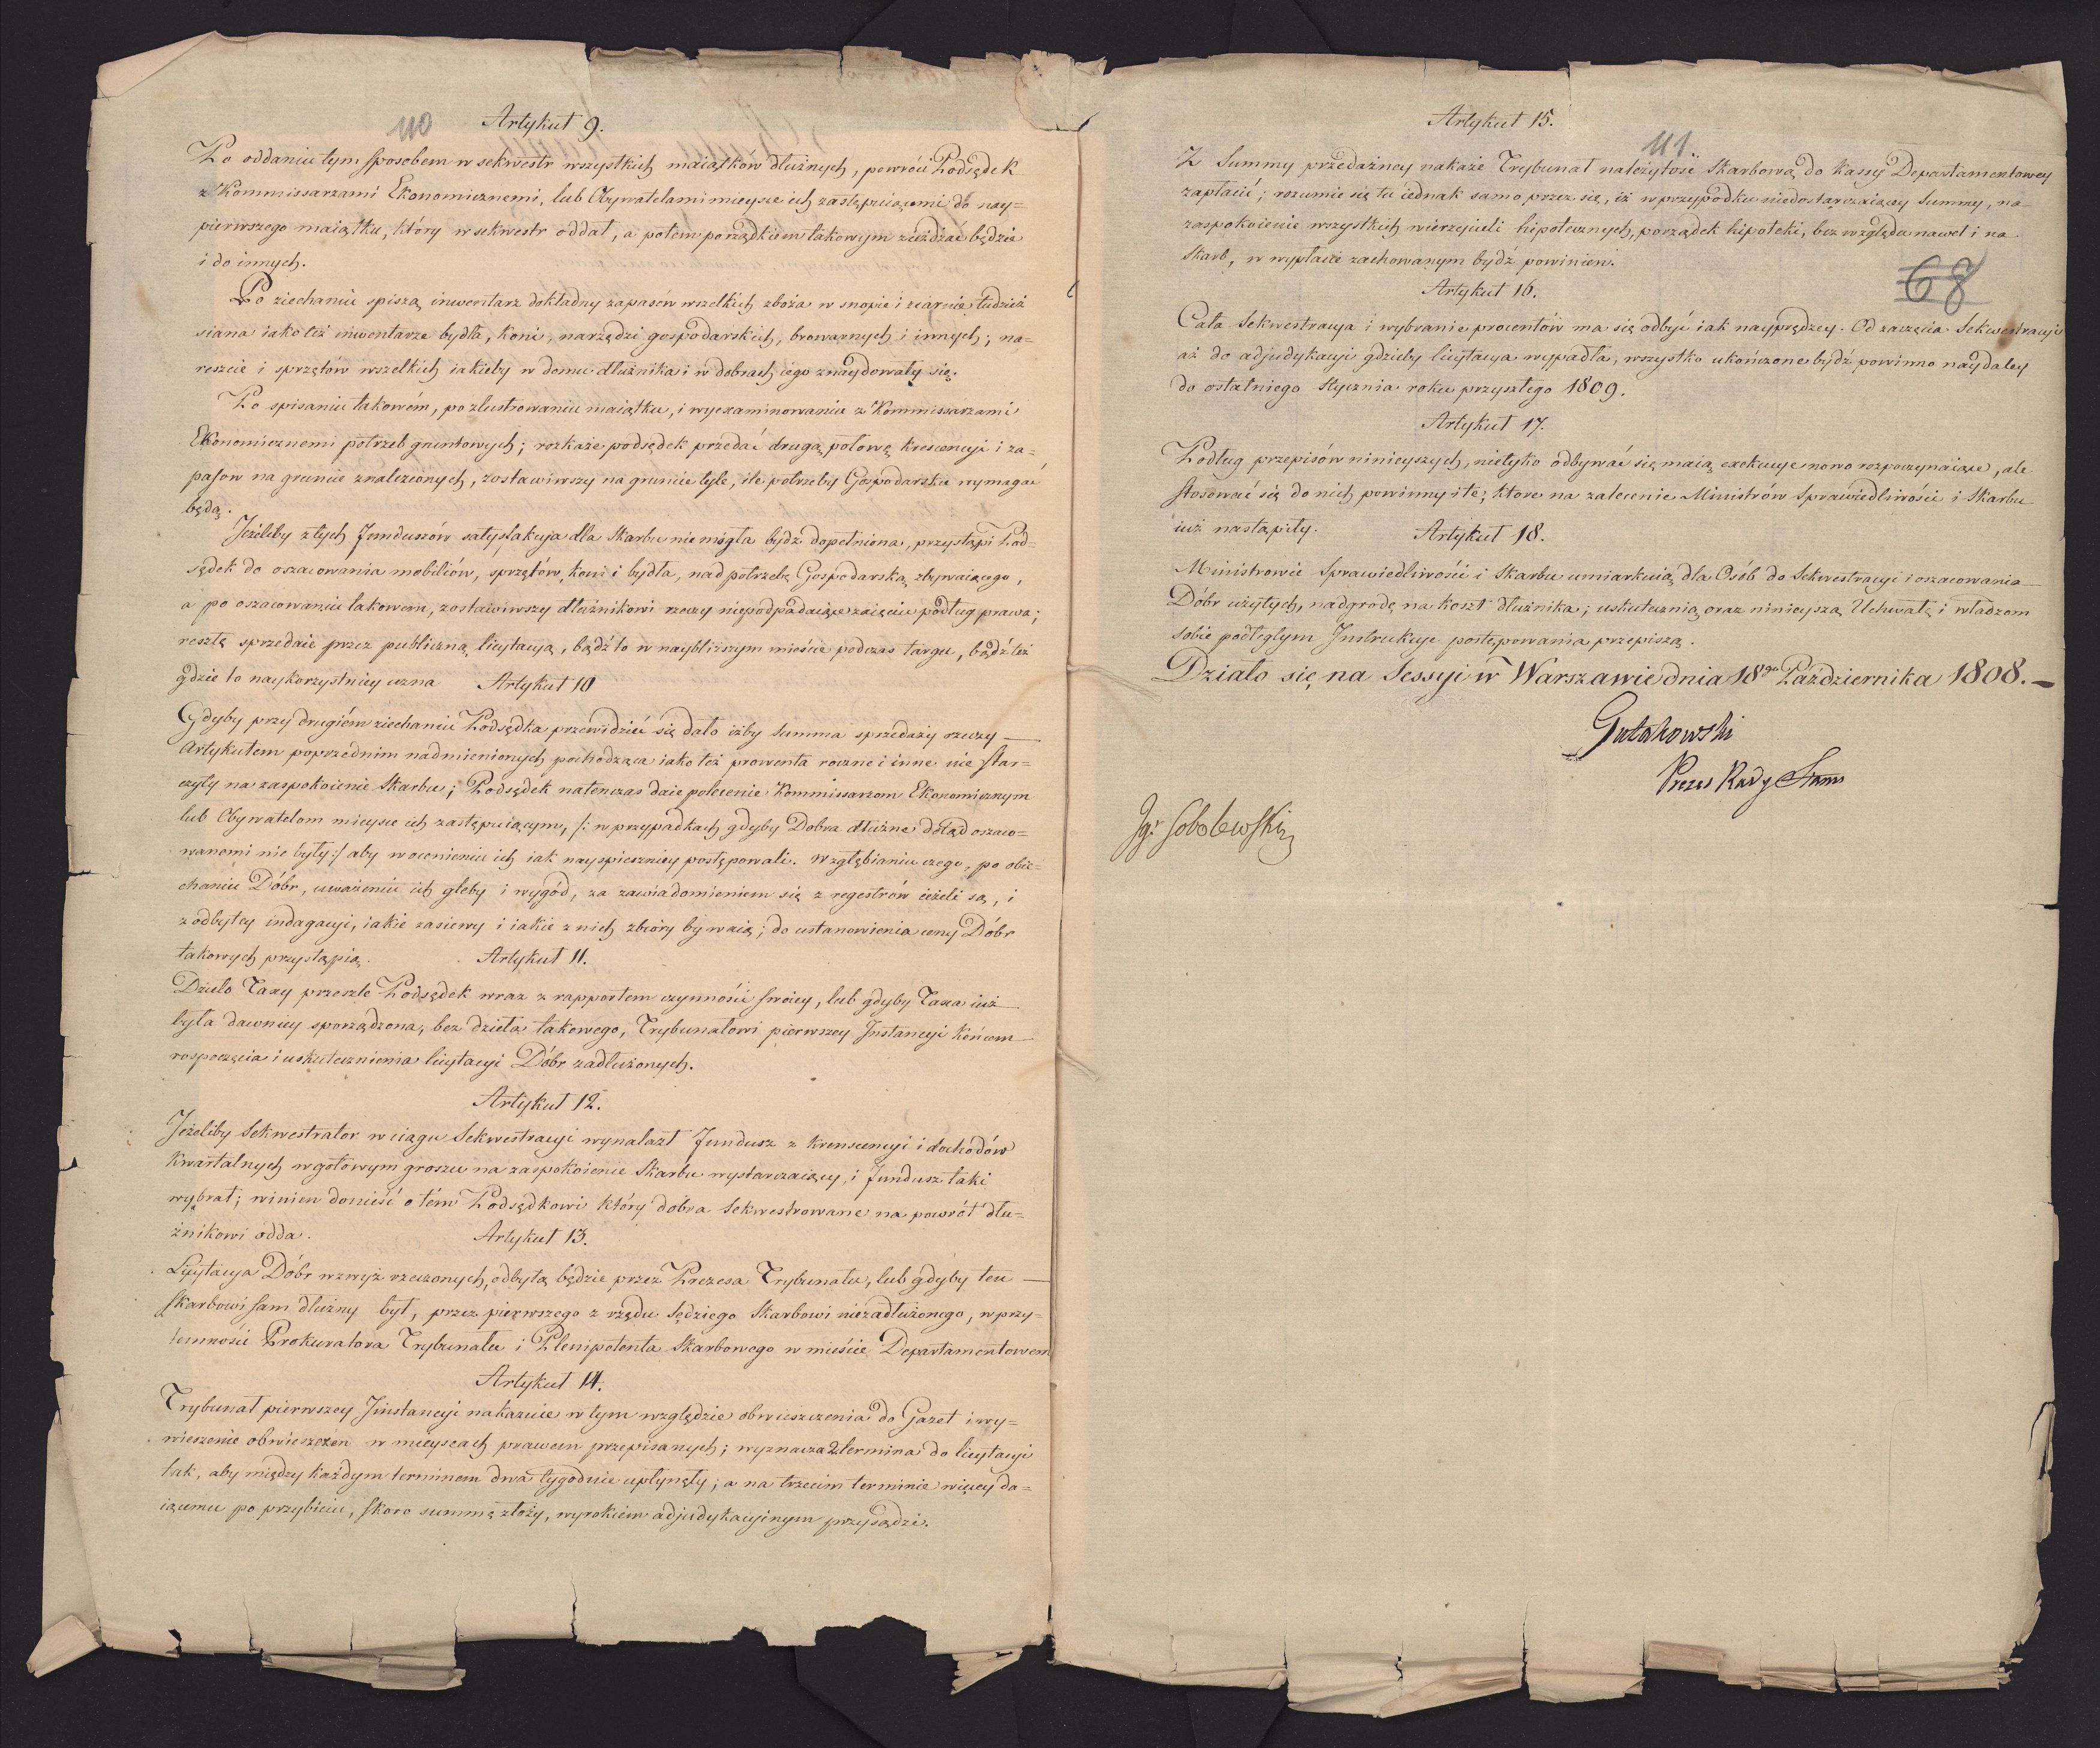 110
Artykuł 9.
Po oddaniu tym sposobem w sekwestr wszystkich maiątków dłużnych, powróci Podsędek
z Kommissarzami Ekonomicznemi, lub Obywatelami mieysce ich zastępuiącemi do nay=
pierwszego maiątku, który w sekwestr oddał, a potem porządkiem takowym zieżdżać będzie
i do innych.
Po ziechaniu spiszą inwentarz dokładny zapasów wszelkich zboża w snopie i ziarnie tudzież
siana iako też inwentarze bydła, koni, narzędzi gospodarskich, browarnych i innych; na=
reszcie i sprzętów wszelkich iakieby w domu dłużnika i w dobrach iego znaydowały się.
Po spisaniu takowém, po zlustrowaniu maiątku, i wyexaminowaniu z Kommissarzami
Ekonomicznemi potrzeb gruntowych; rozkaże podsędek przedać drugą połowę krescencyi i za=
pasow na gruncie znalezionych, zostawiwszy na gruncie tyle, ile potrzeby Gospodarskie wymagać
będą.
Jeżeliby z tych funduszów satysfakcya dla Skarbu nie mogła bydź dopełniona, przystąpi Pod=
sędek do oszacowania mobiliów, sprzętów, koni i bydła, nad potrzebę Gospodarską zbywaiącego,
a po oszacowaniu takowem, zostawiwszy dłużnikowi rzeczy niepodpadaiące zaięciu podług prawa;
resztę sprzedaie przez publiczną licytacyą, bądź to w naybliższym mieście podczas targu, bądź też
gdzie to naykorzystniey uzna
Artykuł 10
Gdyby przy drugiém ziechaniu Podsędka przewidzieć się dało iżby Summa sprzedaży rzeczy
Artykułem poprzednim nadmienionych pochodząca iako też prowenta roczne i inne nie star=
czyły na zaspokoienie Skarbu; Podsędek natenczas daie polecenie Kommissarzom Ekonomicznym
lub Obywatelom mieysce ich zastępuiącym, /: w przypadkach gdyby Dobra dłużne dotąd oszaco=
wanemi nie były:/ aby w ocenieniu ich iak nayspieszniey postępowali. W zgłębianiu czego, po obie=
chaniu Dóbr, uważeniu ich gleby i wygód, za zawiadomieniem się z regestrów ieżeli są, i
z odbytey indagacyi, iakie zasiewy i iakie z nich zbióry bywaią; do ustanowienia ceny Dóbr
takowych przystąpią.
Artykuł 11.
Dzieło Taxy przeszle Podsędek wraz z rapportem czynności swoiey, lub gdyby Taxa iuż
była dawniey sporządzona, bez dzieła takowego, Trybunałowi pierwszey Instancyi końcem
rospoczęcia i uskutecznienia licytacyi Dóbr zadłużonych.
Artykuł 12.
Jeżeliby Sekwestrator w ciągu Sekwestracyi wynalazł fundusz z krenscencyi i dochodów
kwartalnych w gotowym groszu na zaspokoienie Skarbu wystarczaiący, i fundusz taki
wybrał; winien donieść o tém Podsędkowi który dobra sekwestrowane na powrót dłu=
żnikowi odda.
Artykuł 13.
Licytacya Dóbr wzwyż rzeczonych, odbytą będzie przez Prezesa Trybunału, lub gdyby ten
skarbowi sam dłużny był, przez pierwszego z rzędu Sędziego Skarbowi niezadłużonego, w przy=
tomności Prokuratora Trybunału i Plenipotenta Skarbowego w mieście Departamentowem
Artykuł 14.
Trybunał pierwszey Jinstancyi nakazuie w tym względzie obwieszczenia do Gazet i wy=
wieszenie obwieszczén w mieyscach prawem przepisanych; wyznacza 2 termina do licytacyi
tak, aby między każdym terminem dwa tygodnie upłynęły; a na trzecim terminie więcey da=
iącemu po przybiciu, skoro summę złoży, wyrokiem adjudykacyinym przysądzi.
Artykuł 15.
111
Z Summy przedażney nakaże Trybunał należytość Skarbową do Kassy Departamentowey
zapłacić; rozumie się tu iednak samo przez się, iż w przypadku niedostarczaiącey Summy, na
zaspokoienie wszystkich wierzycieli hipotecznych, porządek hipoteki, bez względu nawet i na
Skarb, w wypłacie zachowanym bydź powinien.
68
Artykuł 16.
Cała Sekwestracya i wybranie procentów ma się odbyć iak nayprędzey. Od zaczęcia Sekwestracyi
aż do adjudykacyi gdzieby licytacya wypadła, wszystko ukończone bydź powinno naydaley
do ostatniego Stycznia roku przyszłego 1809.
Artykuł 17.
Podług przepisów ninieyszych, nietyko odbywać się maią exekucye nowo rozpoczynaiące, ale
stosować się do nich powinny i te; ktore na zalecenie Ministrów Sprawiedliwości i Skarbu
iuż nastąpiły.
Artykuł 18.
Ministrowie Sprawiedliwości i Skarbu umiarkuią dla Osób do Sekwestracyi i oszacowania
Dóbr użytych, nadgrodę na koszt dłużnika; uskutecznią oraz ninieyszą Uchwałę i władzom
sobie podległym Instrukcye postępowania przepiszą.
Działo się na Sessyi w Warszawie dnia 18go Października 1808.
Gutakowski
Prezes Rady Stanu
Ig: Sobolewski